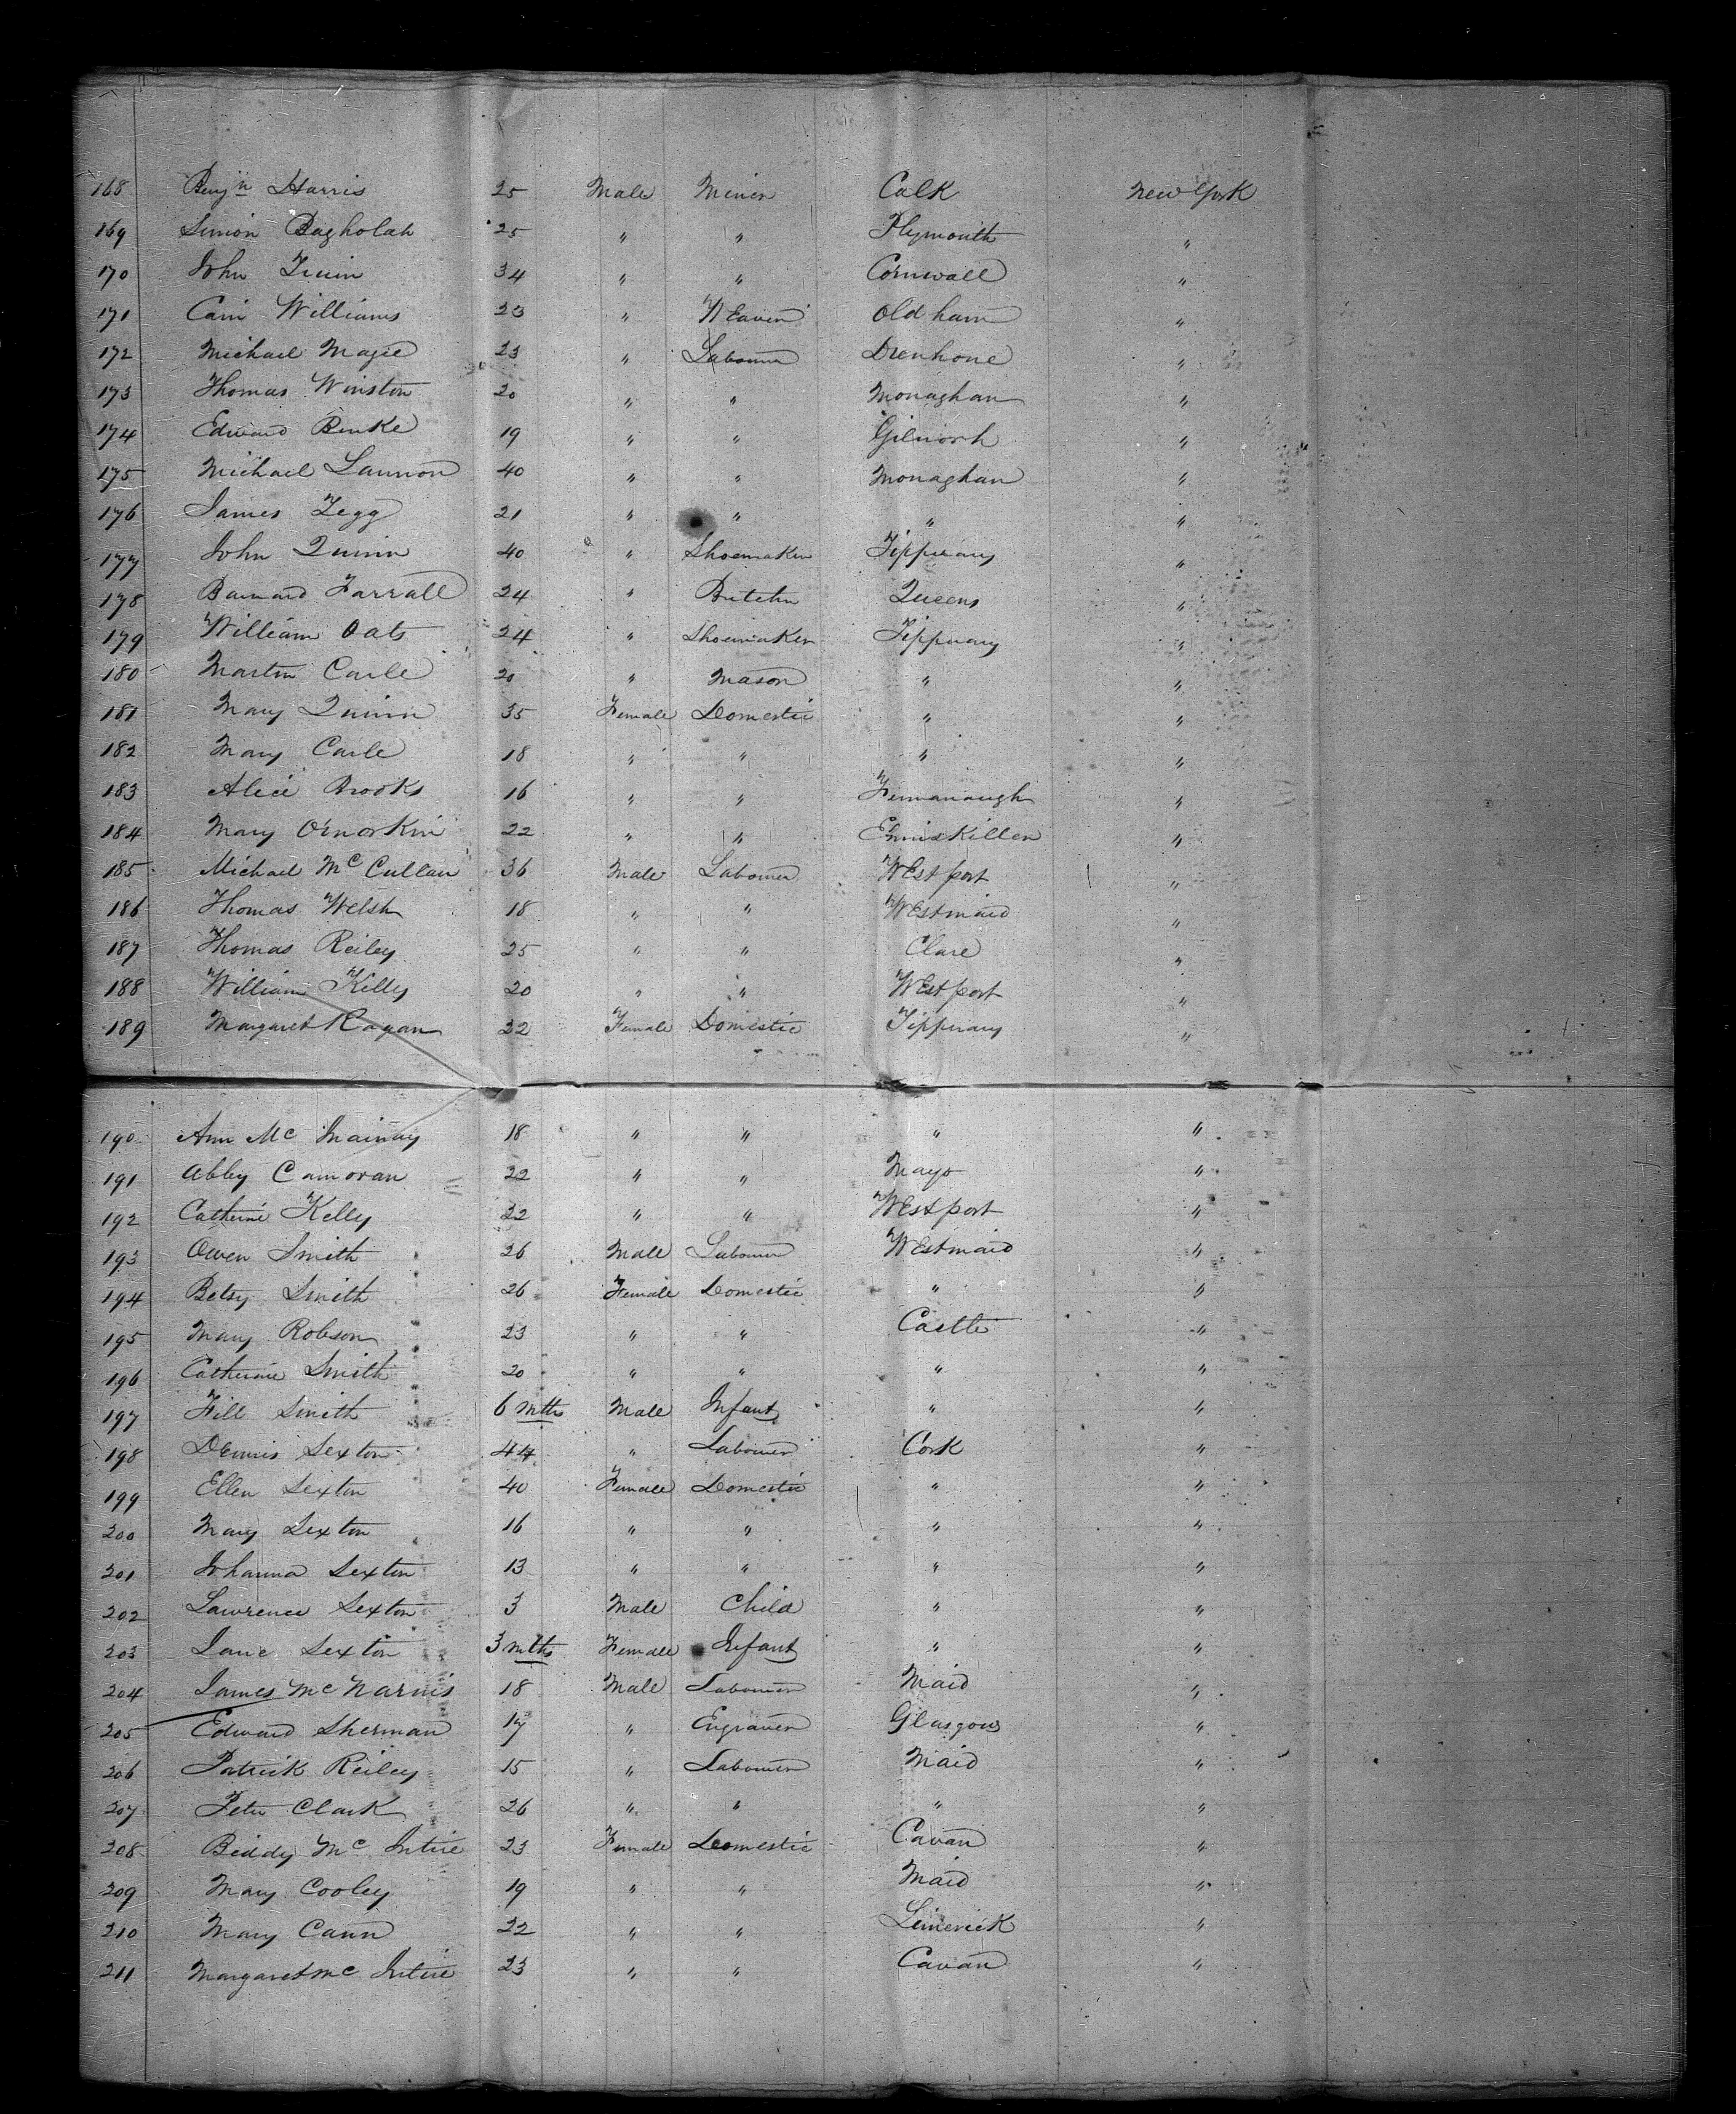 168 Benjn Harris 25 Male Miner Calk New York
169 Simon Bagholah 25 " " Plymouth "
170 John 34 " " Cornwall "
171 Cain Williams 23 " Weaver Old ham "
172 Michael Magee 23 " Labourer "
173 Thomas Winston 20 " " Monaghan "
174 Edward Burke 19 " " "
175 Michael Lannon 40 " " Monaghan "
176 James Tegg 21 " " " "
177 John Quinn 40 " Shoemaker Tipperary "
178 Barnard Farrall 24 " Butcher Queens "
179 William Oats 24 " Shoemaker Tipperary "
180 Martin Carle 20 " Mason " "
181 Mary Quinn 35 Female Domestic " "
182 Mary Carle 18 " " " "
183 Alice Brooks 16 " " Fermanaugh "
184 Mary 22 " " Enniskillen "
185 Michael Mc Cullan 36 Male Labourer West port "
186 Thomas Welsh 18 " " Westmaid "
187 Thomas Reiley 25 " " Clare "
188 William Kelly 20 " " West port "
189 Margaret Ragan 32 Female Domestic Tipperary "
190 Ann Mc 18 " " " "
191 Abby Camoran 22 " " Mayo "
192 Catherine Kelly 32 " " West port "
193 Owen Smith 26 Male Labourer Westmaid "
194 Betsy Smith 26 Female Domestic " "
195 Mary Robson 23 " " Castle "
196 Catherine Smith 20 " " " "
197 Fill Smith 6 mths Male Infant " "
198 Dennis Sexton 44 " Labourer Cork "
199 Ellen Sexton 40 Female Domestic " "
200 Mary Sexton 16 " " " "
201 Johanna Sexton 13 " " " "
202 Lawrence Sexton 3 Male Child " "
203 Jane Sexton 3 mths Female Infant " "
204 James Mc Narnis 18 Male Labourer Maid "
205 Edward Sherman 17 " Engraver Glasgow "
206 Patrick Reiley 15 " Labourer Maid "
207 Peter Clark 26 " " " "
208 Biddy Mc Intire 23 Female Domestic Cavan "
209 Mary Cooley 19 " " Maid "
210 Mary Cann 22 " " Limerick "
211 Margaret Mc Intire 23 " " Cavan "